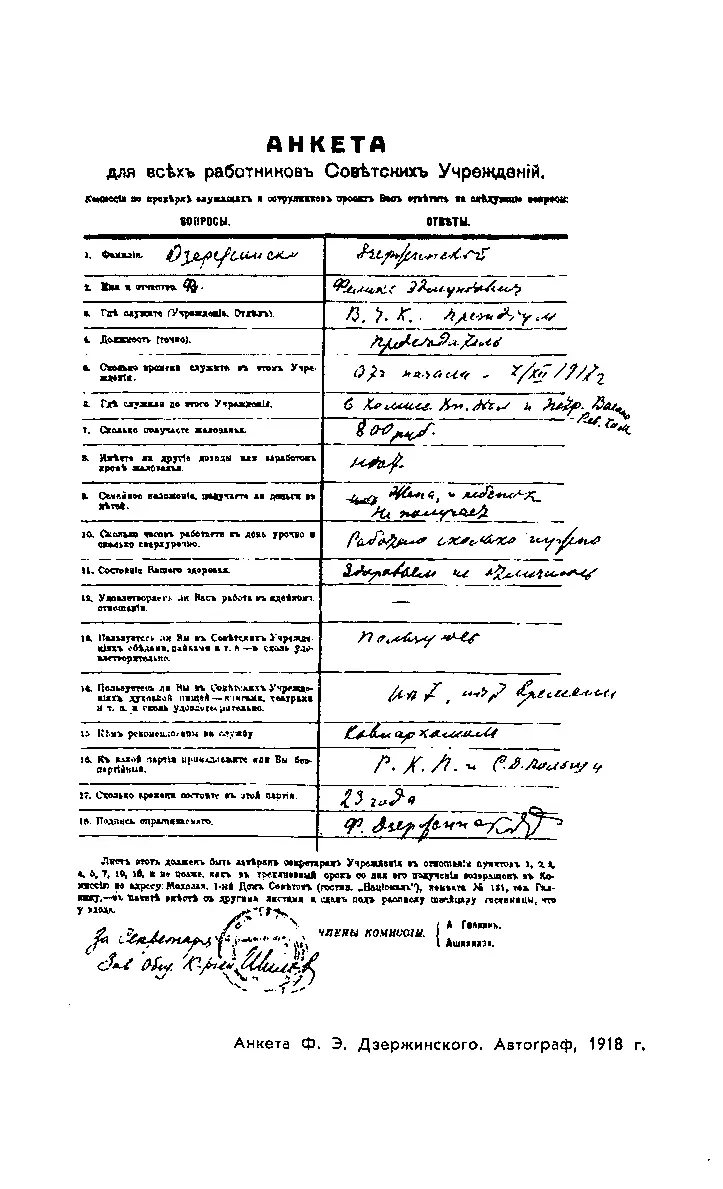 АНКЕТА
для всѣхъ работниковъ Совѣтскихъ Учрежденій.
Комиссія по провѣркѣ служащихъ и сотрудниковъ проситъ Васъ отвѣтить на слѣдующіе вопросы:
ВОПРОСЫ. ОТВѢТЫ.
1. Фамилія. Дзержински Дзержинский
2. Имя и отчество. Ф. Феликс Эдмундович
3. Гдѣ служите (Учрежденіе, Отдѣлъ). В. Ч. К. Президиум
4. Должность (точно). Председатель
5. Сколько времени служите въ этомъ Учре- От начала - 7/XII 1917 г
жденіи.
6. Гдѣ служили до этого Учрежденія. В Комисс. Вн. Дел и Петр. Военно
Рев. Ком
7. Сколько получаете жалованья. 800 руб.
8. Имѣете ли другіе доходы или заработокъ нет.
кромѣ жалованья.
9. Семейное положеніе, получаете ли деньги на Жена, и ребенок
дѣтей. Не получает
10. Сколько часовъ работаете въ день урочно и Работаю сколько нужно
сколько сверхурочно.
11. Состояніе Вашего здоровья. Здоровьем не отличаюсь
12. Удовлетворяетъ ли Васъ работа въ идейномъ —
отношеніи.
13. Пользуетесь ли Вы въ Совѣтскихъ Учрежде- Пользуюсь
ніяхъ обѣдами, пайками и т. п.—и сколь удо-
влетворительно.
14. Пользуетесь ли Вы въ Совѣтскихъ Учрежде- нет, нет времени
ніяхъ духовной пищей—книгами, театрами
и т. п. и сколь удовлетворительно.
15. Кѣмъ рекомендованы на службу Совнаркомом
16. Къ какой партіи принадлежите или Вы без- Р. К. П. и С.Д. Польши
партійный.
17. Сколько времени состоите въ этой партіи. 23 года
18. Подпись опрашиваемаго. Ф. Дзержинский
Листъ этотъ долженъ быть завѣренъ секретаремъ Учрежденія въ отношеніи пунктовъ 1, 2, 3,
4, 5, 7, 10, 16, и не позже, какъ въ трехдневный срокъ со дня его полученія возвращенъ въ Ко-
миссію по адресу: Моховая, 1-ый Домъ Совѣтовъ (гостин. „Націоналъ"), комната № 131, тов. Гал-
кину,—въ пакетѣ вмѣстѣ съ другими листами и сданъ подъ расписку швейцару гостиницы, что
у входа.
За Секретаря
Зав Общ. К-рией
ЧЛЕНЫ КОМИССІИ. А Галкинъ.
Анкета Ф. Э. Дзержинского. Автограф, 1918 г.